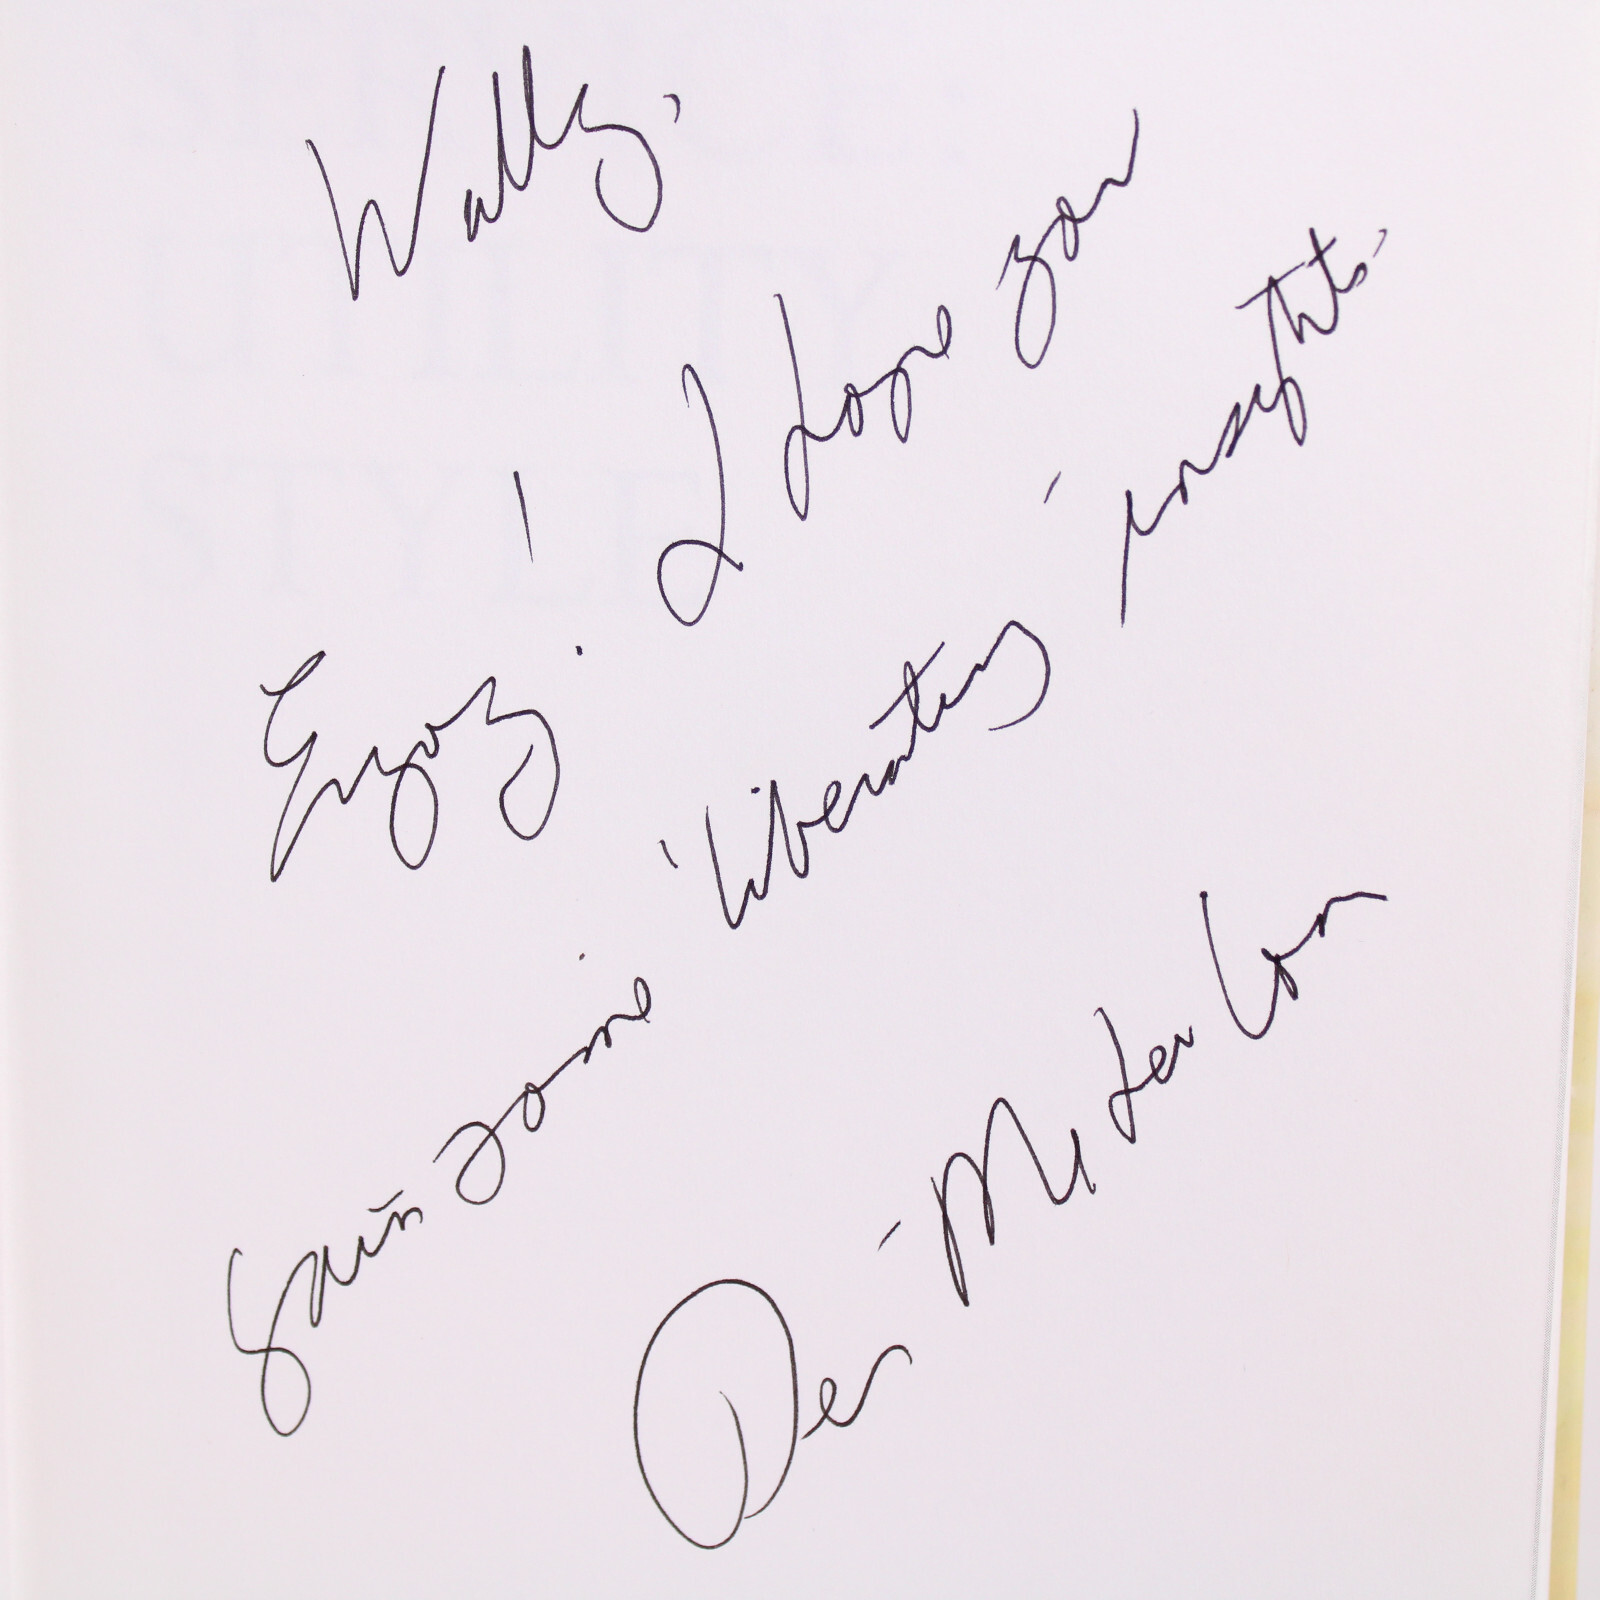 Wally,
Enjoy! I hope you
gain some 'liberating' insights.